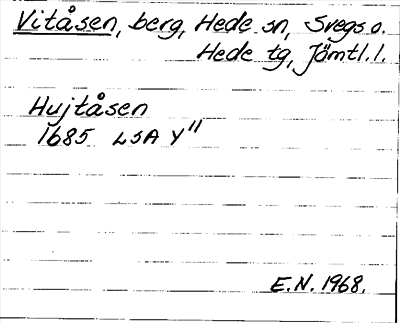 Vitåsen, berg, Hede sn, Svegs o.
Hede tg, Jämtl. l.
Hujtåsen
1685 LSA Y"
E.N. 1968.